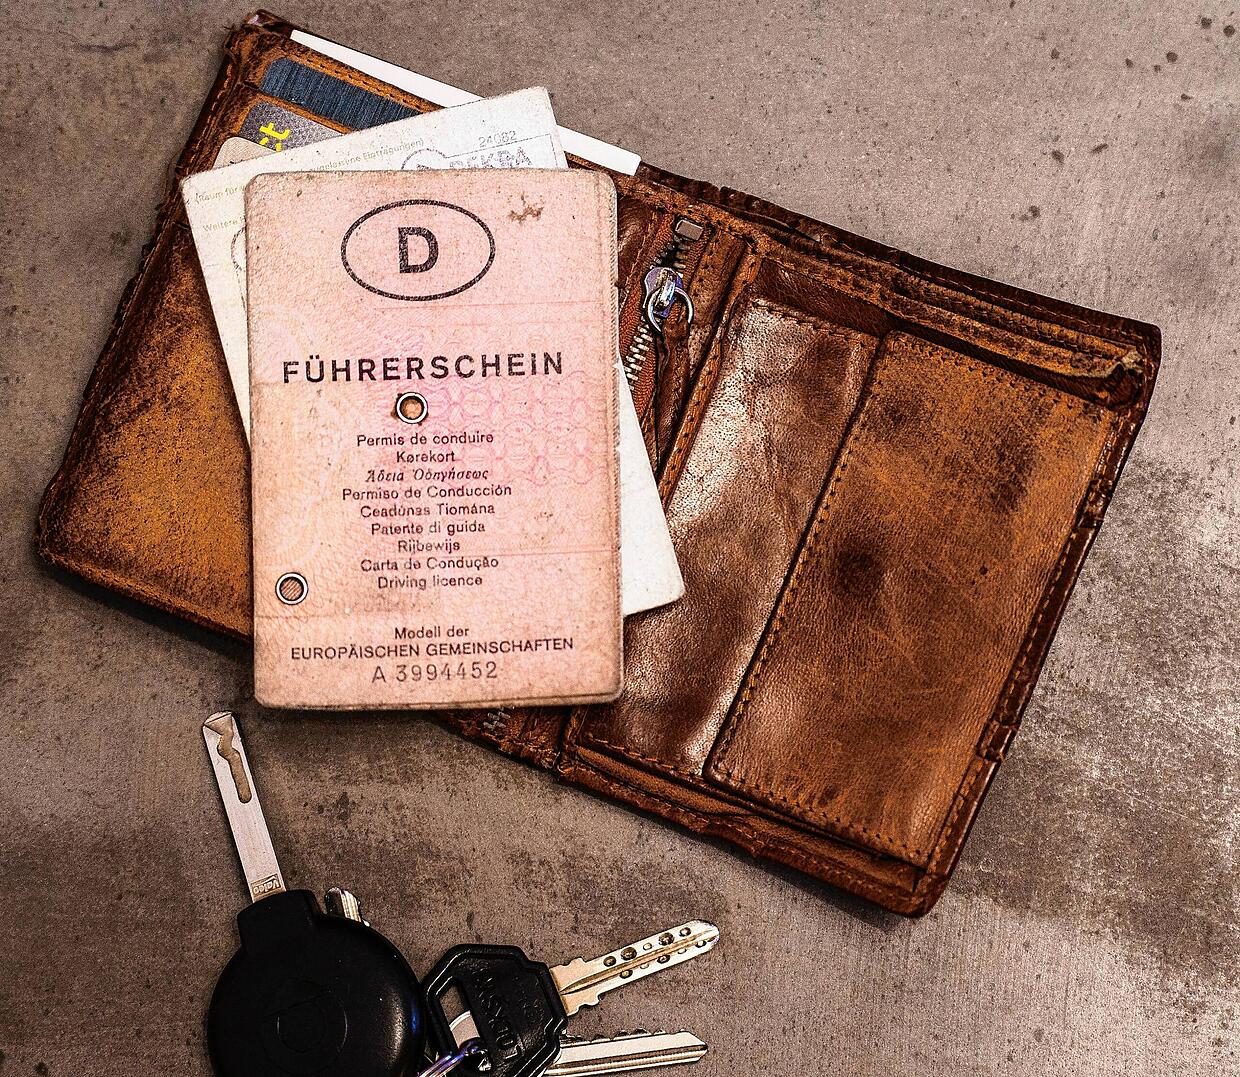 24082
DEKRA
D
FÜHRERSCHEIN
Permis de conduire
Kørekort
Ἄδεια Ὁδηγήσεως
Permiso de Conducción
Ceadúnas Tiomána
Patente di guida
Rijbewijs
Carta de Condução
Driving licence
Modell der
EUROPÄISCHEN GEMEINSCHAFTEN
A 3994452
Valeo